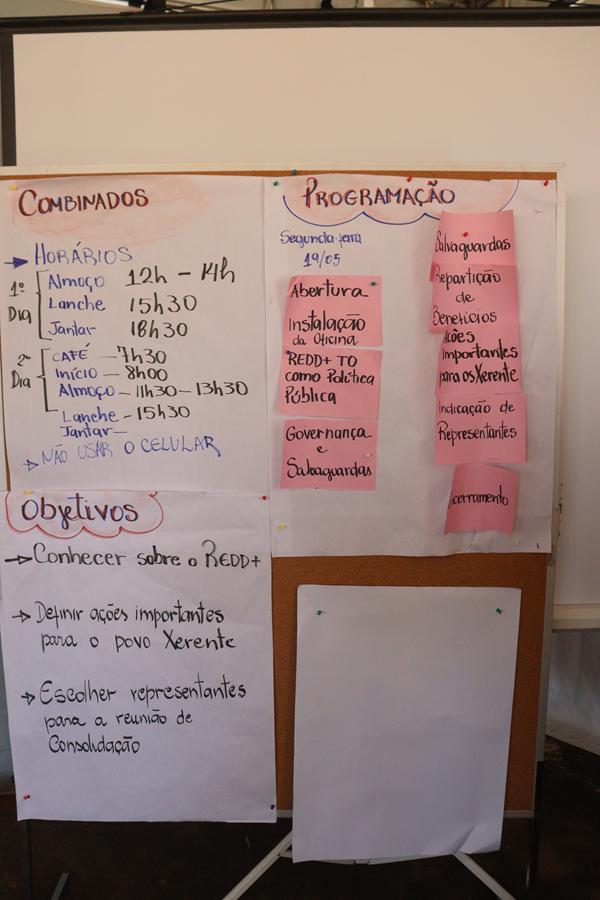 COMBINADOS
→ HORÁRIOS
1º DIA
Almoço 12h - 14h
Lanche 15h30
Jantar 18h30
2º DIA
CAFÉ - 7h30
INÍCIO - 8h00
Almoço - 11h30 - 13h30
Lanche - 15h30
Jantar -
→ NÃO USAR O CELULAR
Objetivos
→ Conhecer sobre o REDD+
→ Definir ações importantes
para o povo Xerente
→ Escolher representantes
para a reunião de
Consolidação
PROGRAMAÇÃO
Segunda-feira
19/05
Abertura
Instalação
da Oficina
REDD+ TO
como Política
Pública
Governança
e
Salvaguardas
Salvaguardas
Repartição
de
Benefícios
Ações
Importantes
para os Xerente
Indicação de
Representantes